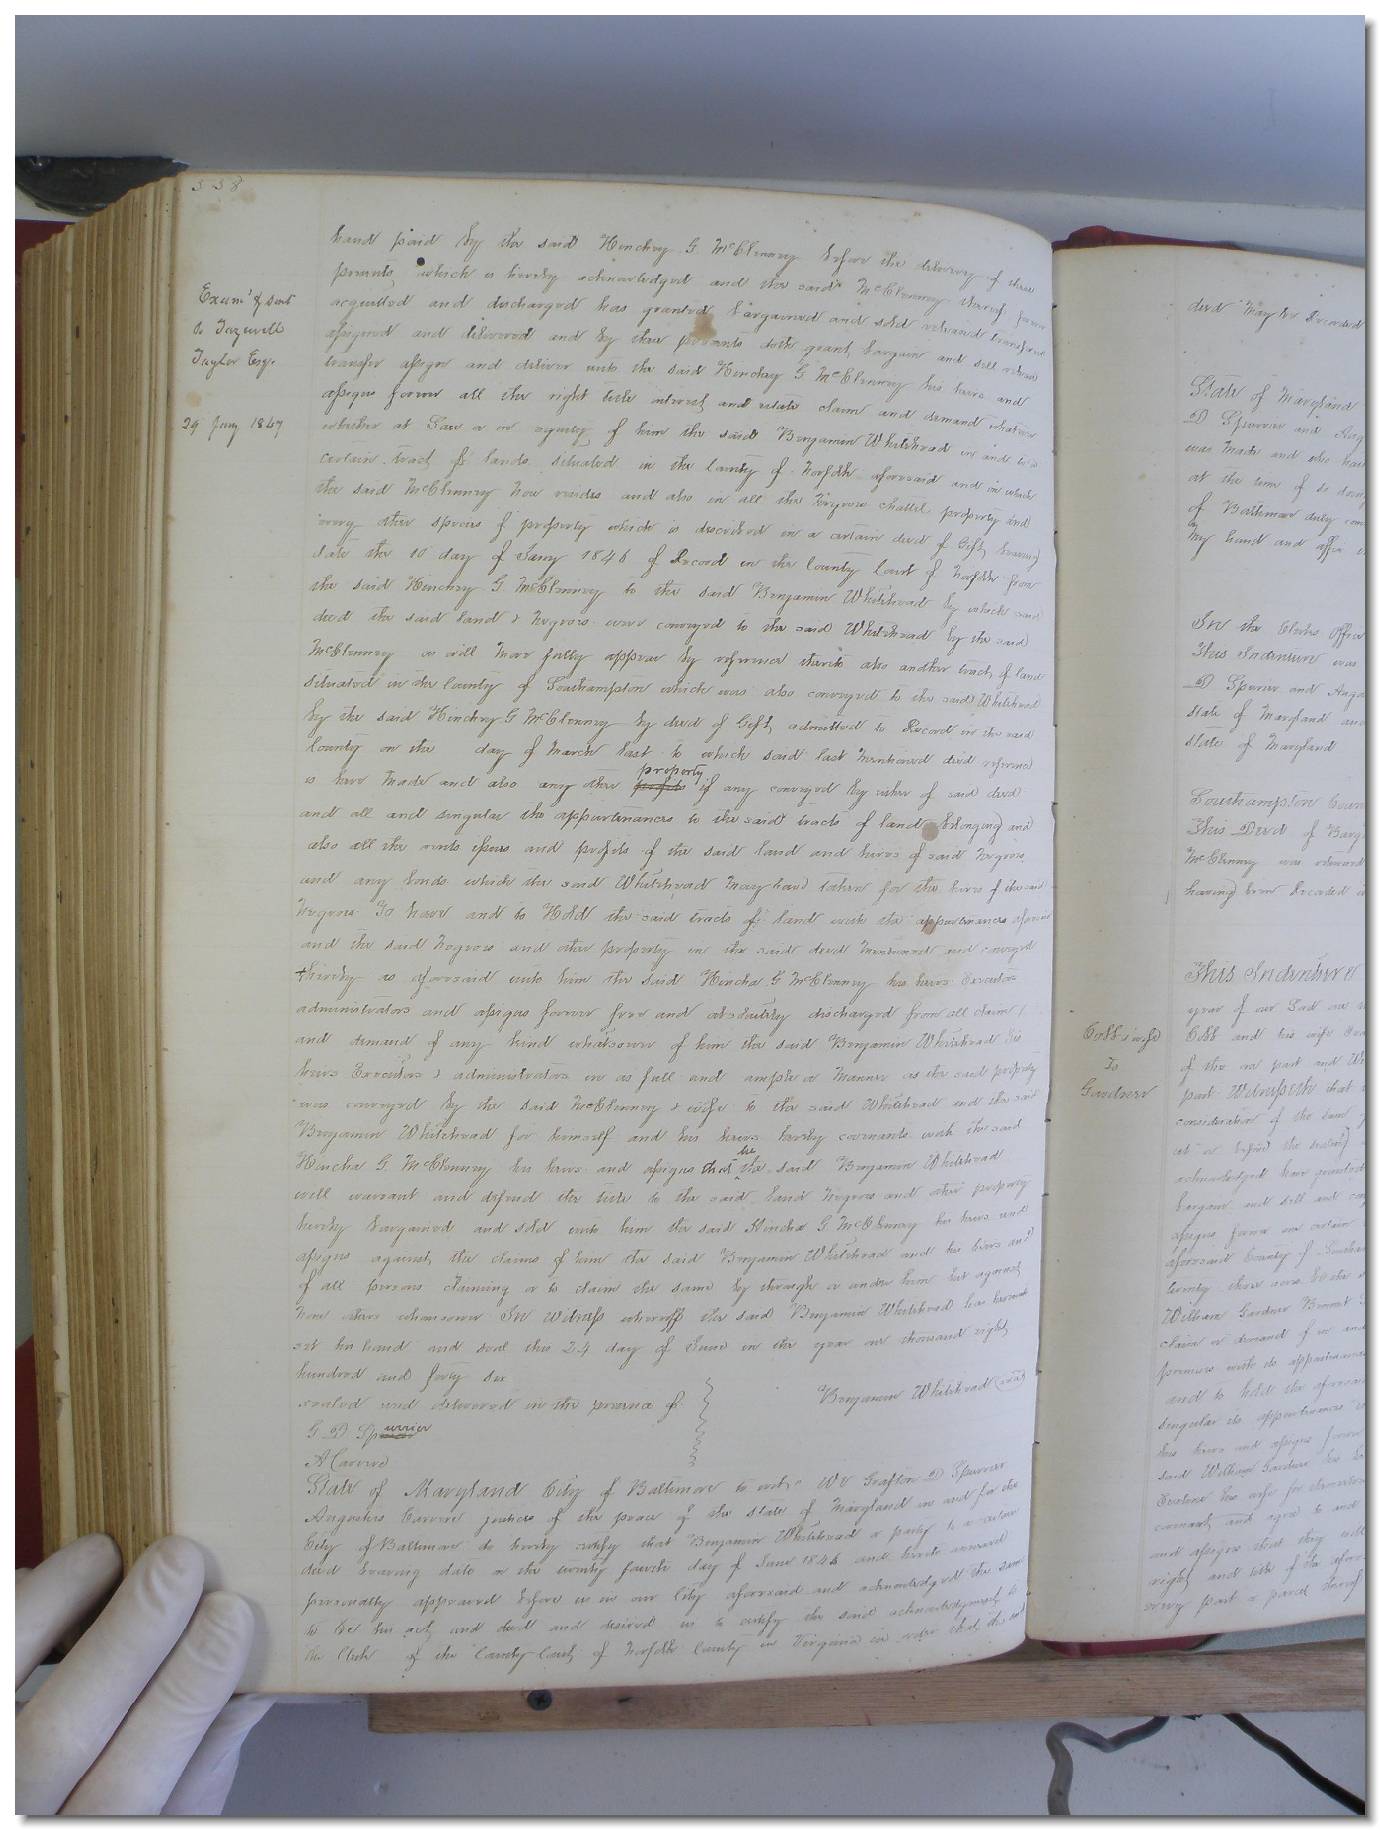 338
Exam'd & sent
to Tazewell
Taylor Esq.
29 Jany 1847
hand paid by the said Hinchey G McClenney before the delivery of these
presents which is hereby acknowledged and the said McClenney thereof forever
acquitted and discharged has granted bargained and sold released transfered
assigned and delivered and by these presents doth grant, bargain and sell release
transfer assign and deliver unto the said Hinchey G. McClenney his heirs and
assigns forever all the right title interest and estate claim and demand whatsoever
whether at Law or in equity of him the said Benjamin Whitehead in and to a
certain tract of lands situated in the County of Norfolk aforesaid and on which
the said McClenney now resides and also in all the Negroes chattel property and
every other species of property which is described in a certain deed of Gift, bearing
date the 10 day of Jany 1846 of Record in the County Court of Norfolk from
the said Hinchey G. McClenney to the said Benjamin Whitehead by which said
deed the said land & Negroes were conveyed to the said Whitehead by the said
McClenney as will more fully appear by reference thereto also another tract of land
situated in the County of Southampton which was also conveyed to the said Whitehead
by the said Hinchey G McClenney by deed of Gift, admitted to Record in the said
County on the day of March last to which said last mentioned deed reference
is here made and also any other profits property if any conveyed by either of said deed
and all and singular the appurtenances to the said tracts of land belonging and
also all the rents issues and profits of the said land and hires of said Negroes
and any bonds which the said Whitehead may have taken for the hires of the said
Negroes To have and to Hold the said tracts of land with the appurtenances aforesaid
and the said Negroes and other property in the said deed mentioned and conveyed
thereby as aforesaid unto him the said Hincha G McClenney his heirs Executors
administrators and assigns forever free and absolutely discharged from all claim
and demand of any kind whatsoever of him the said Benjamin Whitehead his
heirs Executors & administrators in as full and ample a manner as the said property
was conveyed by the said McClenney & wife to the said Whitehead and the said
Benjamin Whitehead for himself and his heirs hereby covenants with the said
Hincha G. McClenney his heirs and assigns that he the said Benjamin Whitehead
will warrant and defend the title to the said land Negroes and other property
hereby bargained and sold unto him the said Hincha G. McClenney his heirs and
assigns against, the claims of him the said Benjamin Whitehead and his heirs and
of all persons claiming or to claim the same by through or under him but against
none others whomsoever In Witness whereof the said Benjamin Whitehead has hereunto
set his hand and seal this 24 day of June in the year one thousand eight
hundred and forty six
sealed and delivered in the presence of
Benjamin Whitehead (seal)
G. D. Spurrier
A Carrere
State of Maryland City of Baltimore to wit: We Grafton D Spurrier
Augustus Carrere justices of the peace of the State of Maryland in and for the
City of Baltimore do hereby certify that Benjamin Whitehead a party to a certain
deed bearing date on the twenty fourth day of June 1846 and hereto annexed
personally appeared before us in our City aforesaid and acknowledged the same
to be his act, and deed and desired us to certify the said acknowledgment to
the Clerk of the County Court, of Norfolk County in Virginia in order that the said
deed may be Recorded
State of Maryland
D Spurrier and Aug
was made and who have
at the time of so doing
of Baltimore duly com
my hand and affix
In the Clerks Office
This Indenture was
D Spurrier and Aug
State of Maryland and
state of Maryland
Southampton Coun
This Deed of Barg
McClenney was
having been Recorded
Cobb & wife
To
Gardner
This Indenture
year of our Lord one
Cobb and his wife
of the one part and
part Witnesseth that
consideration of the sum
at or before the sealing
acknowledged have granted
bargain and sell and
assigns forever one certain
aforesaid County of
County
William Gardner
claim or demand of
premises with its appurtenances
and to hold the aforesaid
singular its appurtenances
his heirs and assigns forever
said William Gardner his
his wife for themselves
covenant, and agree to and
and assigns that they will
right, and title of the afore
every part & parcel thereof